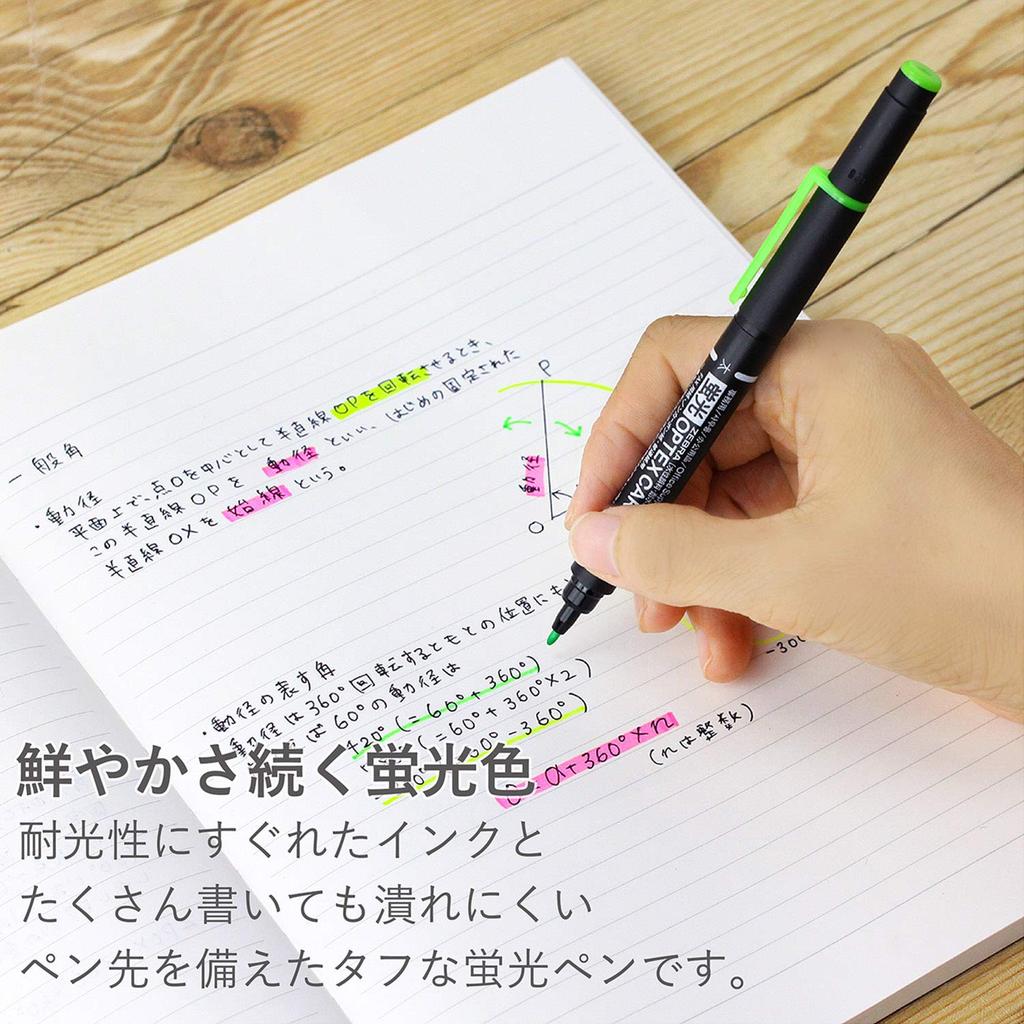 一般角
・動径
平面上で、点Oを中心として半直線OPを回転させるとき、
この半直線OPを 動径 といい、はじめの固定された
半直線OXを 始線 という。
P
動径
O
・動径の表す角
動径は360°回転するともとの位置にも
は60°の動径は
420°(=60°+360°)
(=60°+360°×2)
-360°)
α+360°×n
(nは整数)
-300
太
蛍光
OPTEX CAR
ZEBRA
事務用/사무용/办公用品/Office
鮮やかさ続く蛍光色
耐光性にすぐれたインクと
たくさん書いても潰れにくい
ペン先を備えたタフな蛍光ペンです。